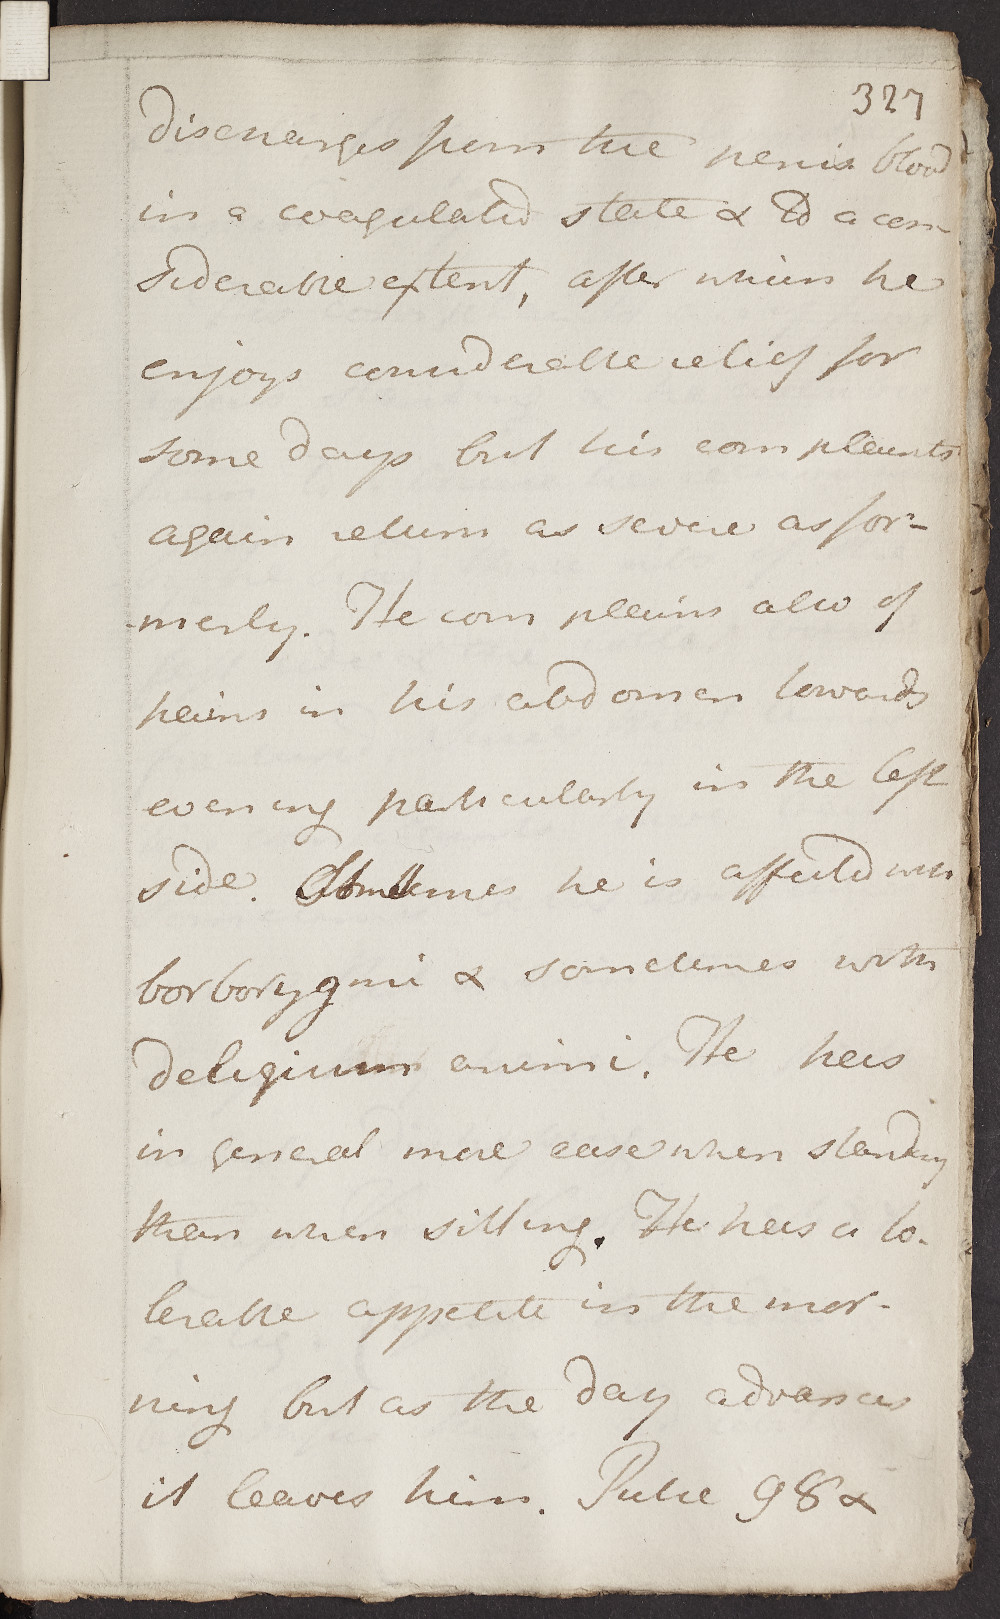 327
discharges from the penis blood
in a coagulated state & to a con-
siderable extent, after which he
enjoys considerable relief for
some days but his complaints
again return as severe as for-
merly. He complains also of
pains in his abdomen towards
evening particularly in the left
side. Sometimes he is affected with
borborygmi & sometimes with
deliqium animi. He has
in general more ease when standing
than when sitting. He has a to-
lerable appetite in the mor-
ning but as the day advances
it leaves him. Pulse 98 &